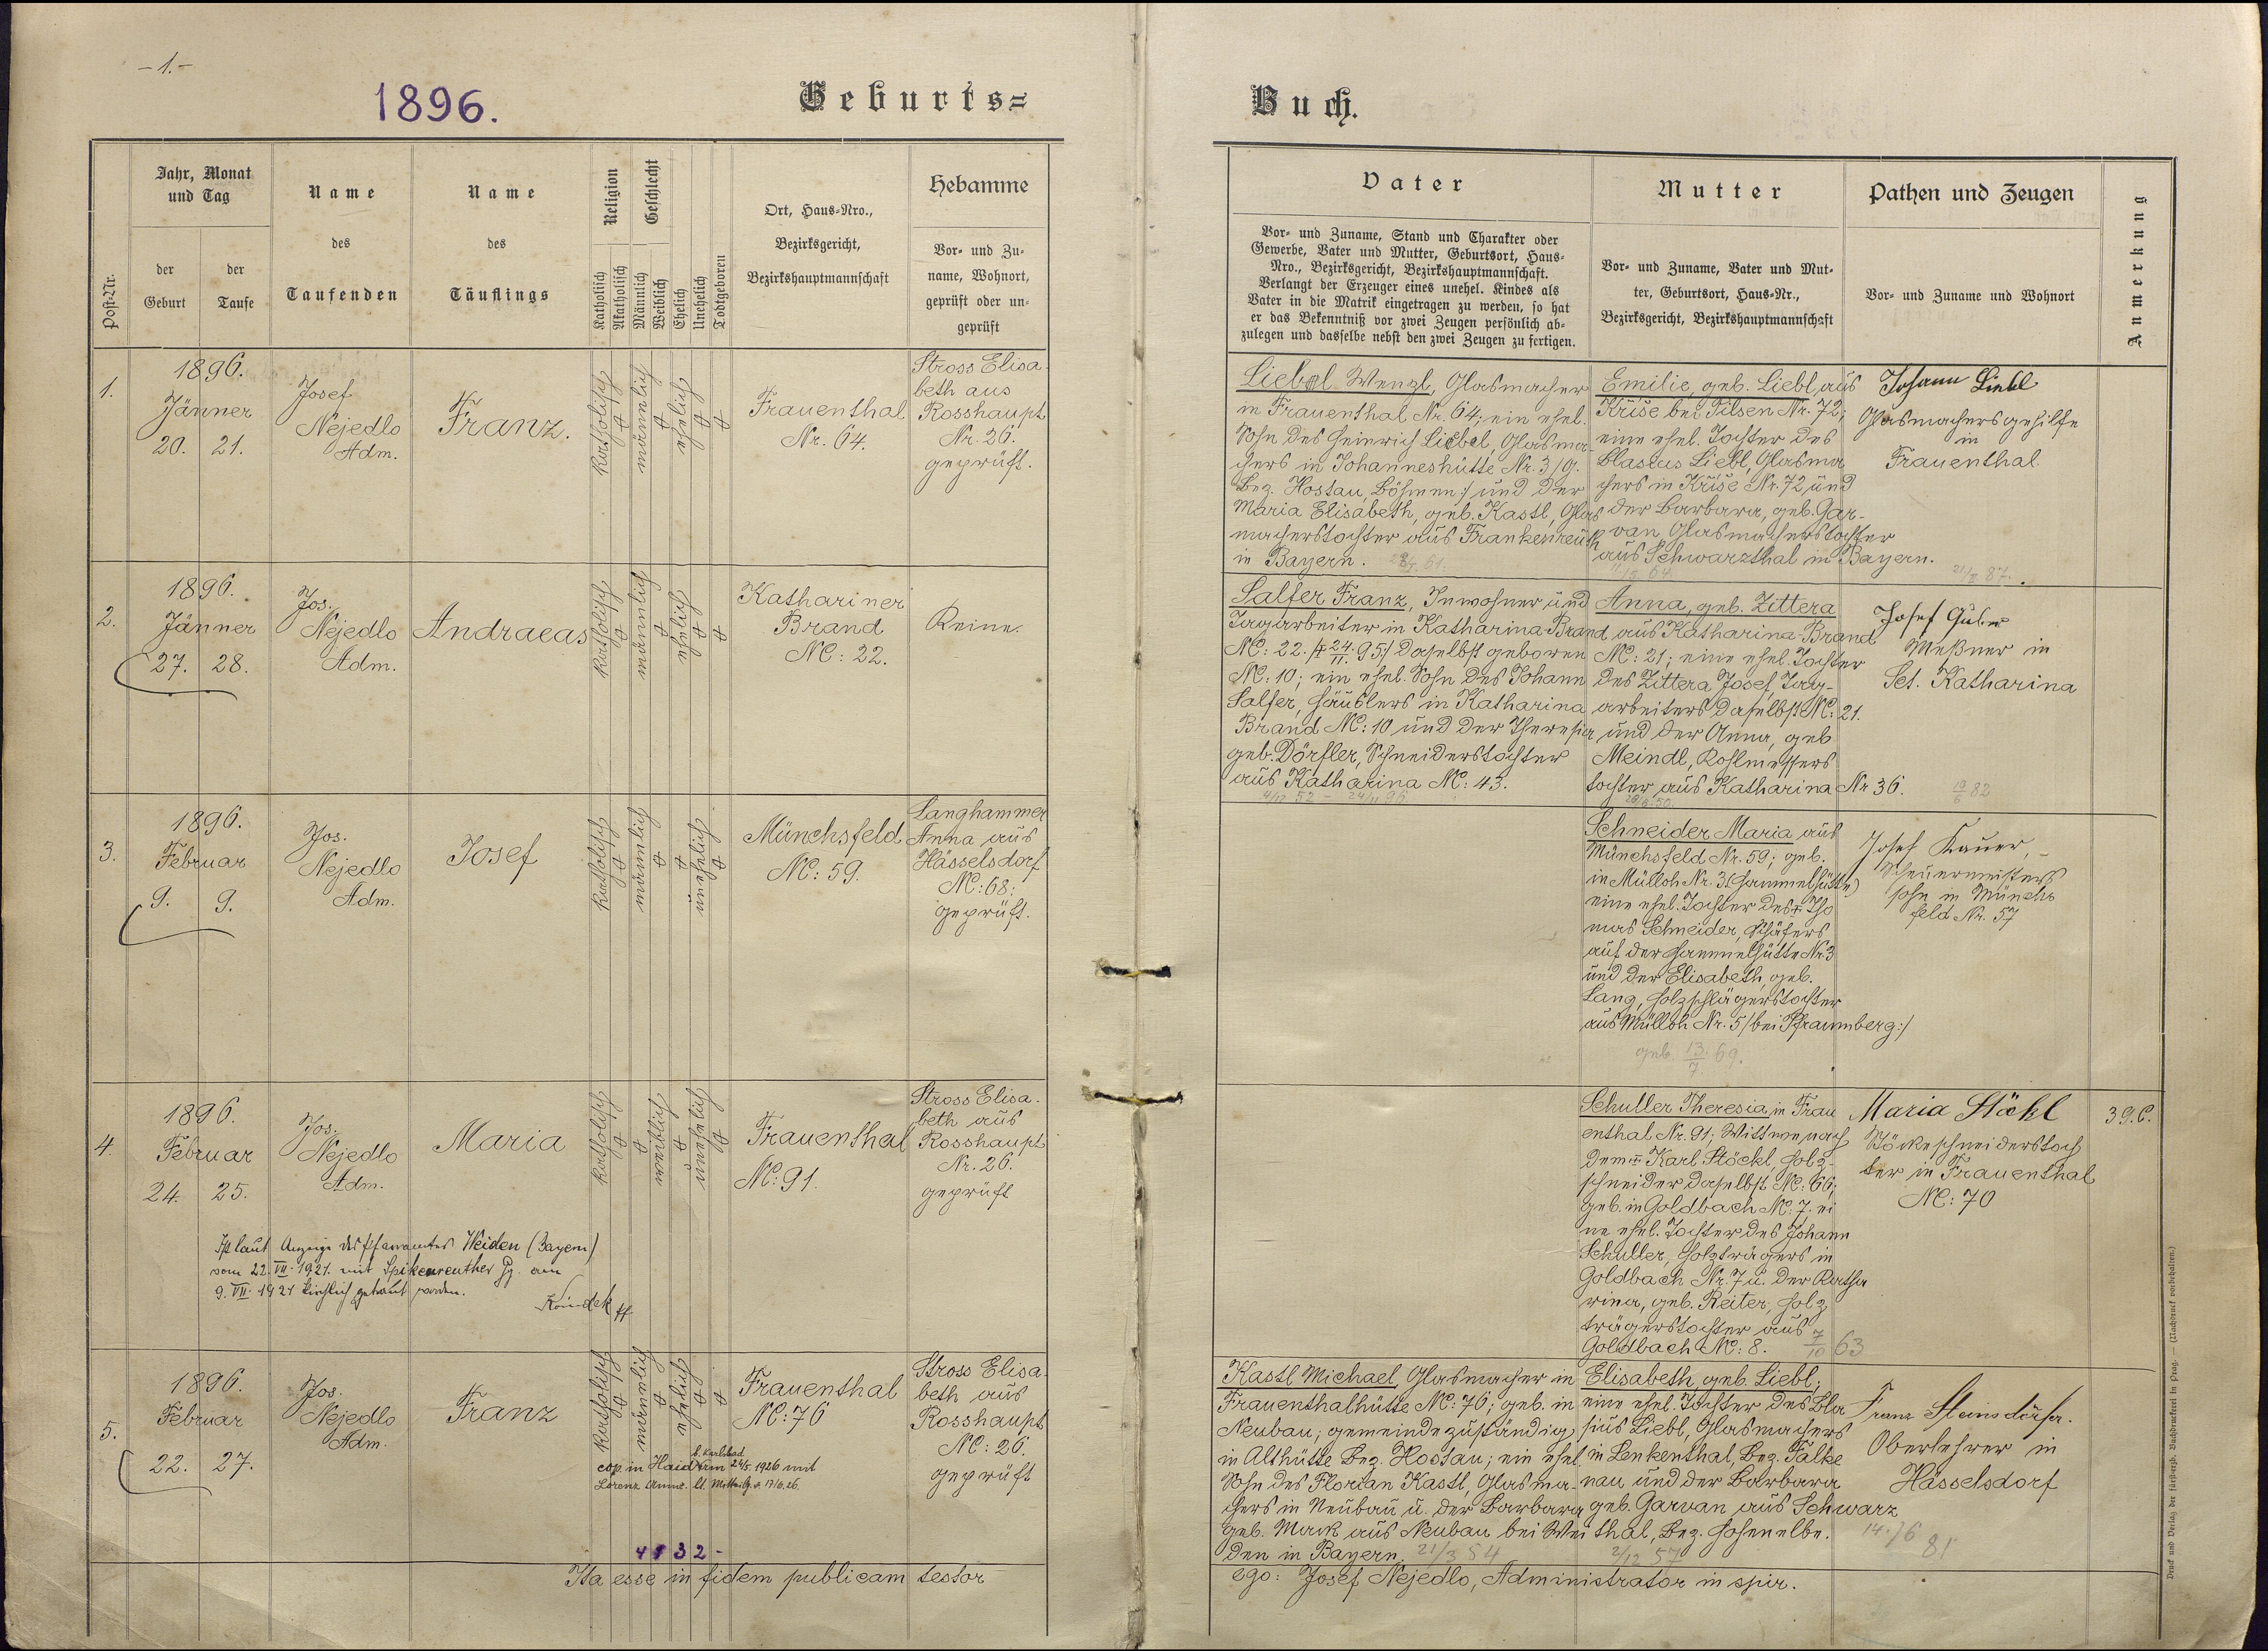 -1.-
1896.
Geburts=
Buch.
Post-Nr.
Jahr, Monat
und Tag
der
Geburt
der
Taufe
Name
des
Taufenden
Name
des
Täuflings
Religion
Katholisch
Akatholisch
Geschlecht
Männlich
Weiblich
Ehelich
Unehelich
Todtgeboren
Ort, Haus-Nro.,
Bezirksgericht,
Bezirkshauptmannschaft
Hebamme
Vor- und Zu-
name, Wohnort,
geprüft oder un-
geprüft
Vater
Vor- und Zuname, Stand und Charakter oder
Gewerbe, Vater und Mutter, Geburtsort, Haus-
Nro., Bezirksgericht, Bezirkshauptmannschaft.
Verlangt der Erzeuger eines unehel. Kindes als
Vater in die Matrik eingetragen zu werden, so hat
er das Bekenntniß vor zwei Zeugen persönlich ab-
zulegen und dasselbe nebst den zwei Zeugen zu fertigen.
Mutter
Vor- und Zuname, Vater und Mut-
ter, Geburtsort, Haus-Nr.,
Bezirksgericht, Bezirkshauptmannschaft
Pathen und Zeugen
Vor- und Zuname und Wohnort
Anmerkung
1.
1896.
Jänner
20. 21.
Josef
Nejedlo
Adm.
Franz.
katholisch
männlich
ehelich
Frauenthal
Nr. 64.
Stross Elisa-
beth aus
Rosshaupt
Nr. 26.
geprüft.
Liebl Wenzl, Glasmacher
in Frauenthal Nr. 64; ein ehel.
Sohn des Heinrich Liebl, Glasma-
chers in Johanneshütte Nr. 3/g.
Bez. Hostau, Böhmen:/ und der
Maria Elisabeth, geb. Kastl, Glas
macherstochter aus Frankenreuth
in Bayern. 61.
Emilie, geb. Liebl, aus
Kříše bei Pilsen Nr. 72;
eine ehel. Tochter des
Blasius Liebl, Glasma
chers in Kříše Nr. 72 und
der Barbara, geb. Gar-
van Glasmacherstochter
aus Schwarzthal in Bayern.
64
Johann Liebl
Glasmachersgehilfe
in
Frauenthal.
21/II 87.
2.
1896.
Jänner
27. 28.
Jos.
Nejedlo
Adm.
Andraeas
katholisch
männlich
ehelich
Kathariner
Brand
NC: 22.
Keine.
Salfer Franz, Inwohner und
Tagarbeiter in Katharina-Brand
NC: 22. /† 24/11. 95:/ daselbst geboren
NC: 10; ein ehel. Sohn des Johann
Salfer, Häuslers in Katharina
Brand NC: 10 und der Theresia
geb. Dörfler, Schneiderstochter
aus Katharina NC: 43.
4/12 52 - 24/11 96
Anna, geb. Zittera
aus Katharina-Brand
NC: 21; eine ehel. Tochter
des Zittera Josef, Tag-
arbeiters daselbst NC: 21.
und der Anna, geb
Meindl, Kohlmessers
tochter aus Katharina Nr 36.
50.
Josef Guber
Meßner in
Sct. Katharina
19/6 82
3.
1896.
Februar
9. 9.
Jos.
Nejedlo
Adm.
Josef
katholisch
männlich
unehelich
Münchsfeld
NC: 59.
Langhammer
Anna aus
Hässelsdorf
NC: 68;
geprüft.
Schneider Maria aus
Münchsfeld Nr. 59; geb.
in Mülloh Nr. 3 (Hammelhütte)
eine ehel. Tochter des † Tho
mas Schneider, Schäfers
auf der Hammelhütte Nr. 3
und der Elisabeth, geb.
Lang, Holzschlägerstochter
aus Mülloh Nr. 5 /bei Pfraumberg:/
geb. 13/7 69.
Josef Kauer,
Scheuermeisters
sohn in Münchs
feld Nr. 57
4.
1896.
Februar
24. 25.
Jos.
Nejedlo
Adm.
Maria
katholisch
weiblich
unehelich
Frauenthal
NC: 91.
Stross Elisa-
beth aus
Rosshaupt
Nr. 26.
geprüft
Ist laut Anzeige des Pfarramtes Weiden (Bayern)
vom 22. VII. 1921. mit Spikenreuther Gg. am
9. VII. 1921 kirchlich getraut worden.
Schuller Theresia, in Frau
enthal Nr. 91; Wittwe nach
dem † Karl Stöckl, Holz-
schneider daselbst NC: 66;
geb. in Goldbach NC. 7. ei
ne ehel. Tochter des Johann
Schuller, Holzträgers in
Goldbach Nr. 7 u. der Katha
rina, geb. Reiter, Holz
trägerstochter aus
Goldbach NC: 8. 7/10 63
Maria Stöckl
Stöckeschneiderstoch
ter in Frauenthal
NC: 70
39.C.
5.
1896.
Februar
22. 27.
Jos.
Nejedlo
Adm.
Franz
katholisch
männlich
ehelich
Frauenthal
NC: 76
Stross Elisa-
beth aus
Rosshaupt
NC: 26.
geprüft
b. Karlsbad
cop in Haid am 24/5. 1926 mit
Lorenz Anna. lt. Mitteilg. v. 17/6.26.
4132-
Kastl Michael, Glasmacher in
Frauenthalhütte NC: 76; geb. in
Neubau; gemeindezuständig
in Althütte Bez. Hostau; ein ehel.
Sohn des Florian Kastl, Glasma-
chers in Neubau u. der Barbara
geb. Mark aus Neubau bei Wei
den in Bayern. 21/3 54
Elisabeth, geb. Liebl;
eine ehel. Tochter des Bla
sius Liebl, Glasmachers
in Lenkenthal, Bez. Falke
nau und der Barbara
geb. Garvan, aus Schwarz
thal, Bez. Hohenelbe.
2/12 57
Franz Steinsdörfer.
Oberlehrer in
Hässelsdorf
14./6 81
Ita esse in fidem publicam testor
ego: Josef Nejedlo, Administrator in spir.
Druck und Verlag der fürsterzb. Buchdruckerei in Prag. — (Nachdruck vorbehalten.)